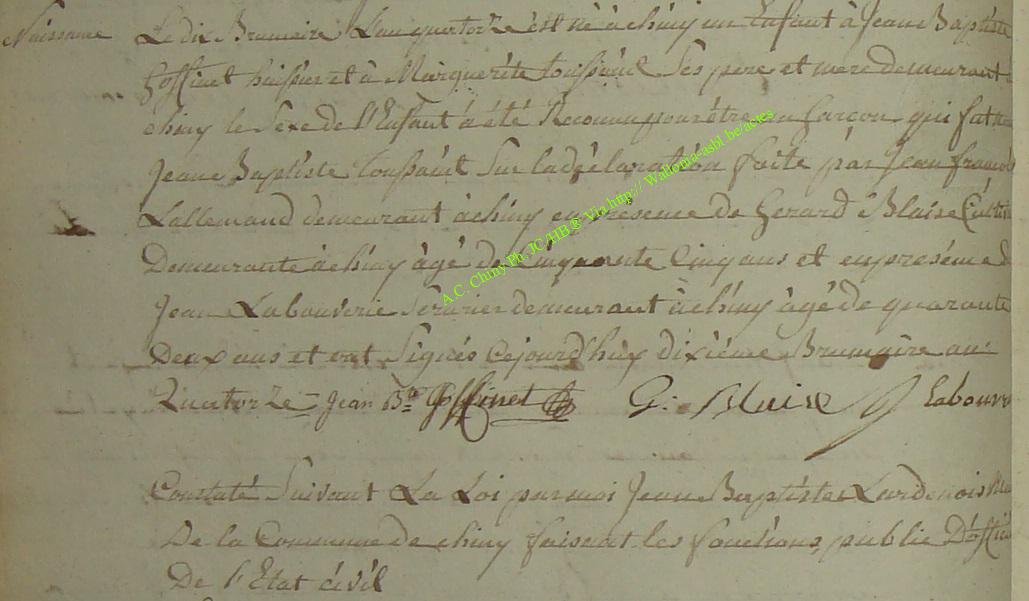 Naissance Le dix Brumaire L'an quatorze est né à chiny un Enfant à Jean Baptiste
Goffinet huissier et à Marguerite toussaint Ses pere et mere demeurant à
chiny le Sexe de l'Enfant à été Reconnu pour être un Garçon qui fut
Jean Baptiste toussaint Sur la déclaration faite par Jean francois
Lallemand demeurant à chiny en présence de Gerard Blaise Cultiv
Demeurante à chiny âgé de Cinquante Cinq ans et en présence d
Jean Labouverie Serurier demeurant à chiny âgé de quarante
Deux ans et ont Signés Cejourd'huy dixiéme Brumaire an
Quatorze Jean Bte Goffinet G: Blaise J labouve
Constaté Suivant La Loi par moi Jean Baptiste Lardenois Mai
De la Commune de chiny faisant les fonctions public D'offici
De l'Etat civil
A.C. Chiny Ph. JC/HB@ Via http:// Wallonia-asbl.be/actes